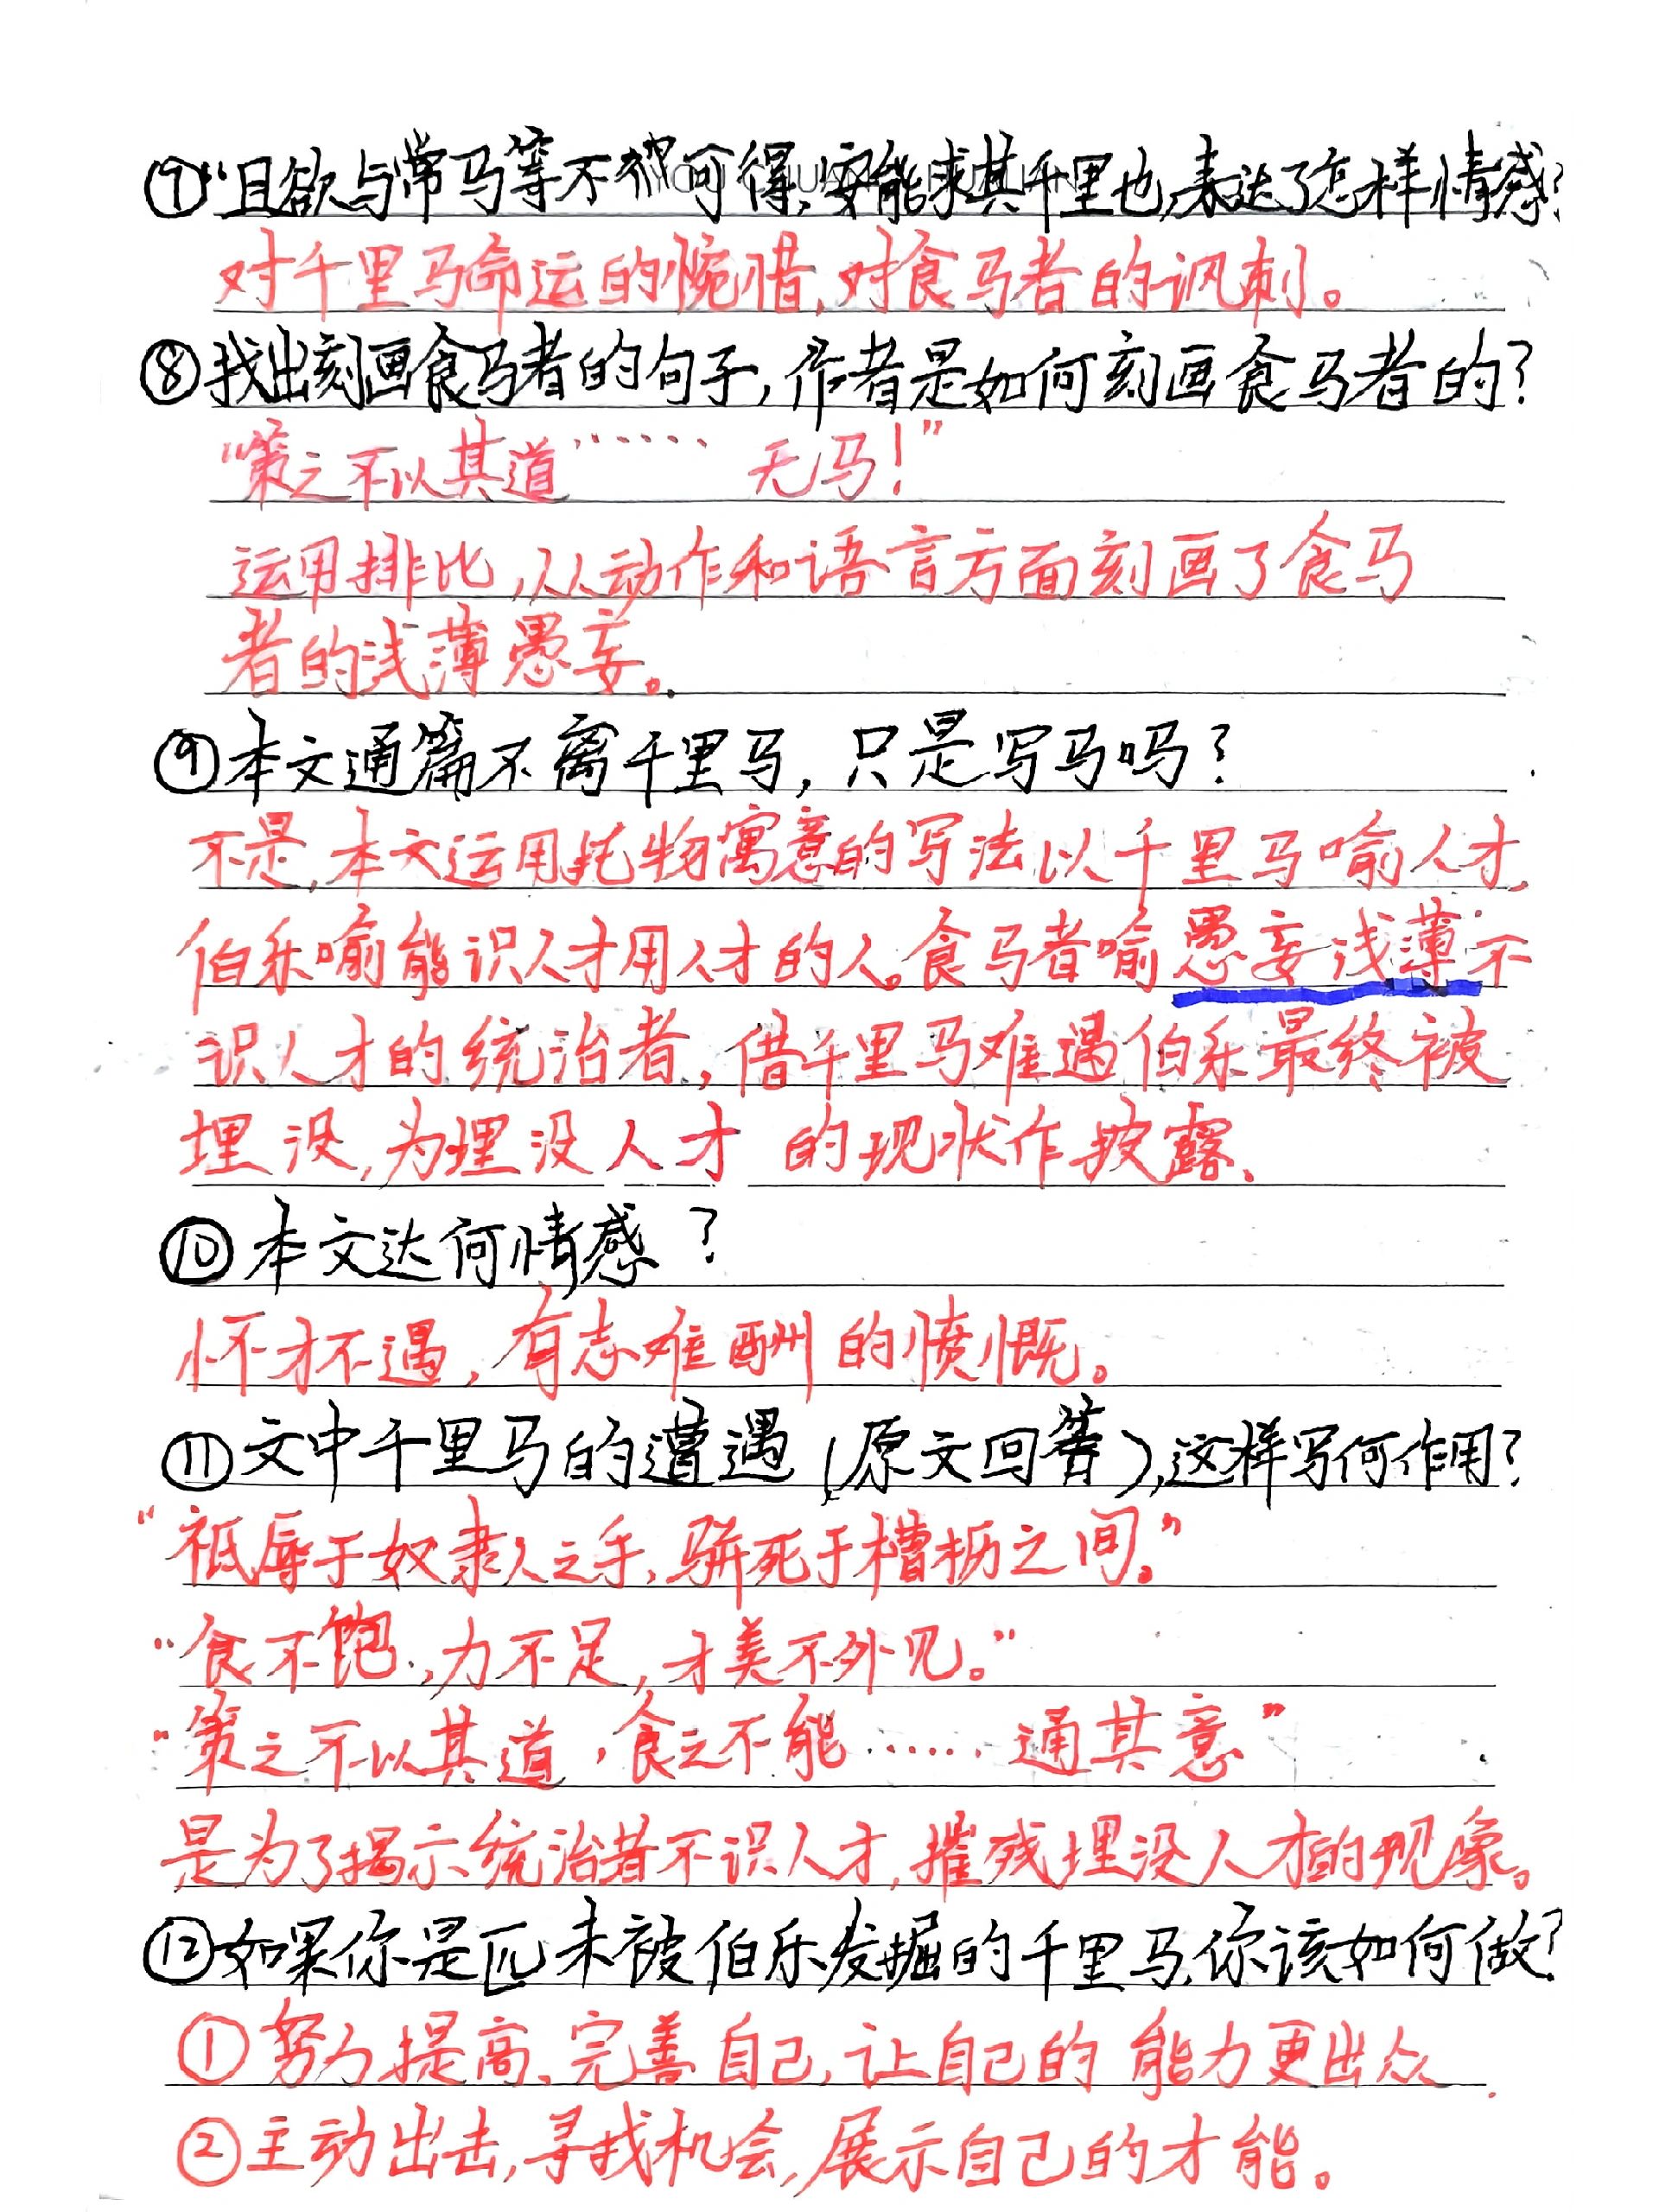 ⑦“且欲与常马等不可得,安能求其千里也,表达了怎样情感?
对千里马命运的惋惜,对食马者的讽刺。
⑧找出刻画食马者的句子,作者是如何刻画食马者的?
“策之不以其道…… 无马!”
运用排比,从动作和语言方面刻画了食马
者的浅薄愚妄。
⑨本文通篇不离千里马,只是写马吗?
不是,本文运用托物寓意的写法以千里马喻人才,
伯乐喻能识人才用人才的人。食马者喻愚妄浅薄不
识人才的统治者,借千里马难遇伯乐最终被
埋没,为埋没人才 的现状作披露、
⑩本文达何情感?
怀才不遇,有志难酬的愤慨。
⑪文中千里马的遭遇(原文回答),这样写何作用?
“祗辱于奴隶人之手,骈死于槽枥之间。”
“食不饱,力不足,才美不外见。”
“策之不以其道,食之不能……通其意”
是为了揭示统治者不识人才,摧残埋没人才的现象。
⑫如果你是匹未被伯乐发掘的千里马,你该如何做?
①努力提高、完善自己,让自己的能力更出众
②主动出击,寻找机会,展示自己的才能。